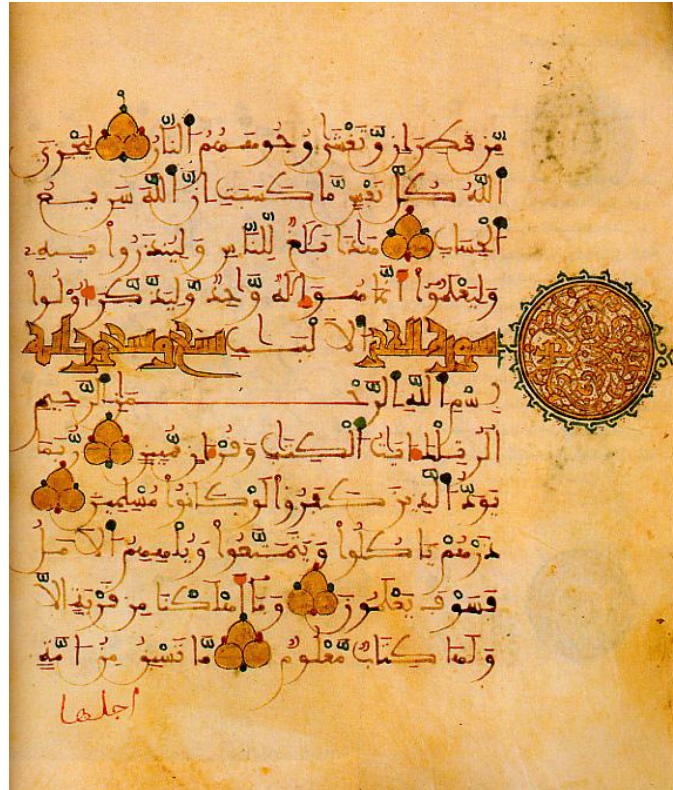 مِّن قَطِرَانٍ وَّتَغْشَىٰ وُجُوهَهُمُ النَّارُ لِيَجْزِيَ
اللَّهُ كُلَّ نَفْسٍ مَّا كَسَبَتِ اِنَّ اللَّهَ سَرِيعُ
الْحِسَابِ هَٰذَا بَلَٰغٌ لِّلنَّاسِ وَلِيُنذَرُوا بِهِ
وَلِيَعْلَمُوا أَنَّمَا هُوَ إِلَٰهٌ وَّاحِدٌ وَّلِيَذَّكَّرَ أُوْلُوا
سورة الحجر الاَلْبَٰبِ تسع وتسعون اية
بِسْمِ اللَّهِ الرَّحْمَٰنِ الرَّحِيمِ
الَر تِلْكَ ءَايَٰتُ الْكِتَٰبِ وَقُرْءَانٍ مُّبِينٍ رُّبَمَا
يَوَدُّ الَّذِينَ كَفَرُوا لَوْ كَانُوا مُسْلِمِينَ
ذَرْهُمْ يَاكُلُوا وَيَتَمَتَّعُوا وَيُلْهِهِمُ الاَمَلُ
فَسَوْفَ يَعْلَمُونَ وَمَا أَهْلَكْنَا مِن قَرْيَةٍ اِلاَّ
وَلَهَا كِتَابٌ مَّعْلُومٌ مَّا تَسْبِقُ مِنُ امَّةٍ
اجلها